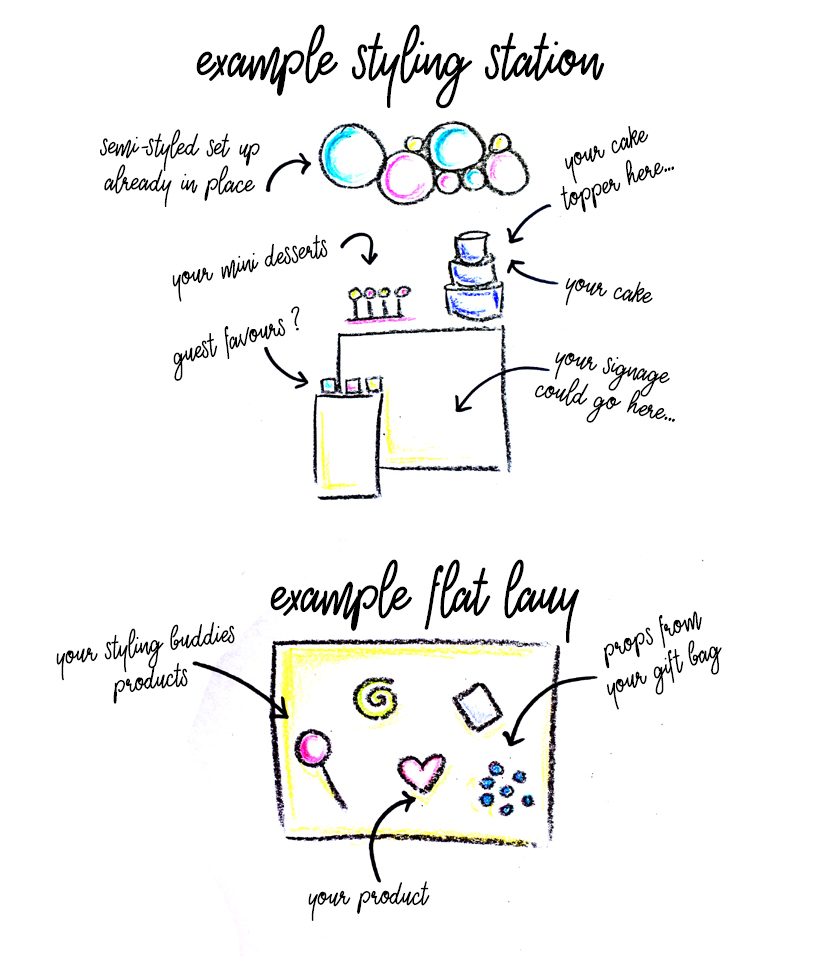 example styling station
semi-styled set up
already in place
your cake
topper here...
your mini desserts
your cake
guest favours ?
your signage
could go here...
example flat lauy
your styling buddies
products
props from
your gift bag
your product